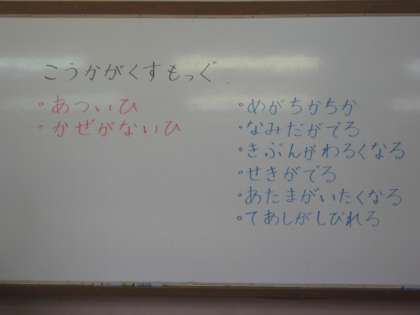 こうかがくすもっぐ
・あついひ
・かぜがないひ
・めがちかちか
・なみだがでる
・きぶんがわるくなる
・せきがでる
・あたまがいたくなる
・てあしがしびれる